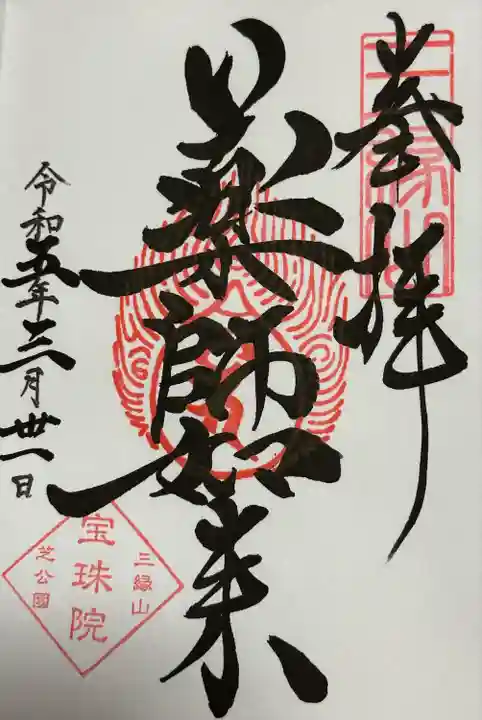 奉拝
三縁山
薬師如来
令和五年三月卅一日
三縁山
宝珠院
芝公園